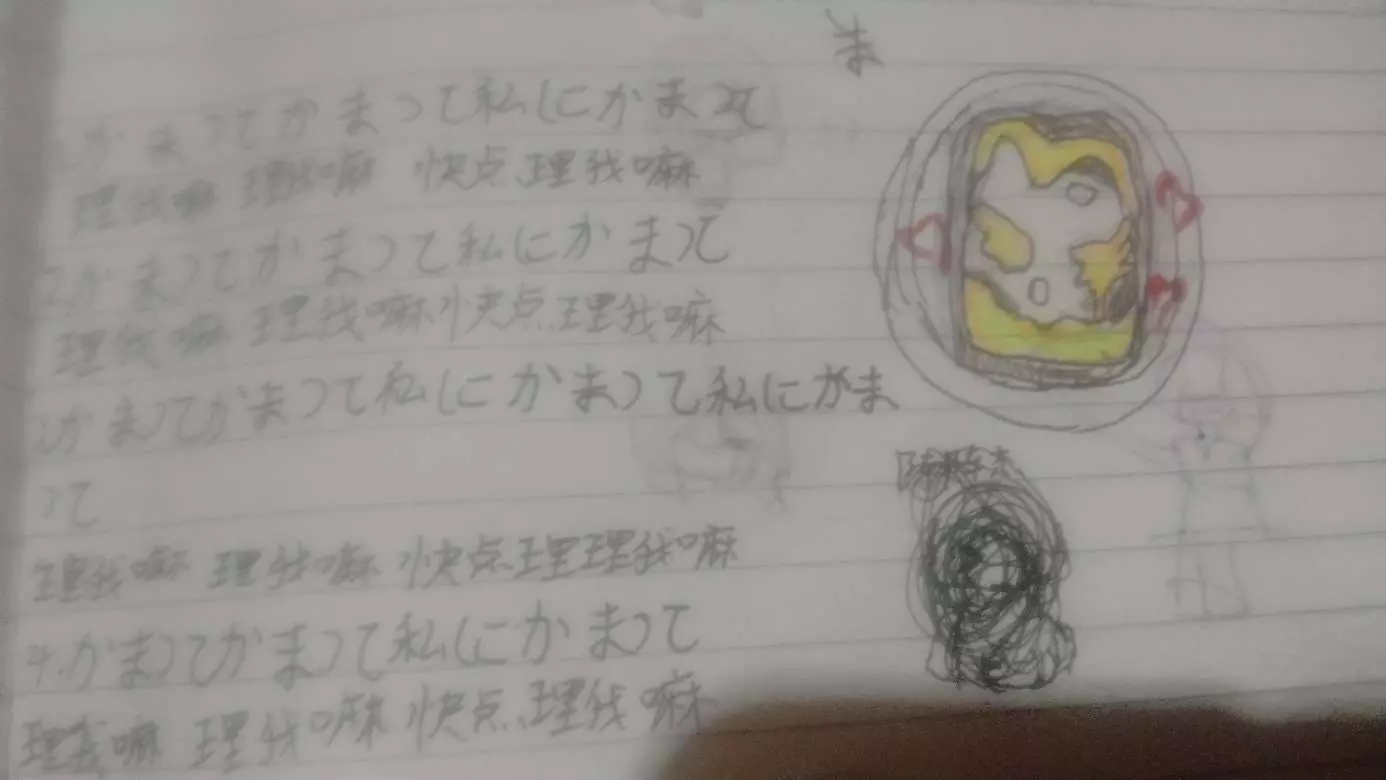 1.かまってかまって私にかまって
理我嘛 理我嘛 快点理我嘛
2.かまってかまって私にかまって
理我嘛 理我嘛快点理我嘛
3.かまってかまって私にかまって私にがま
って
理我嘛 理我嘛 快点理理我嘛
4.かまってかまって私にかまって
理我嘛 理我嘛 快点理我嘛